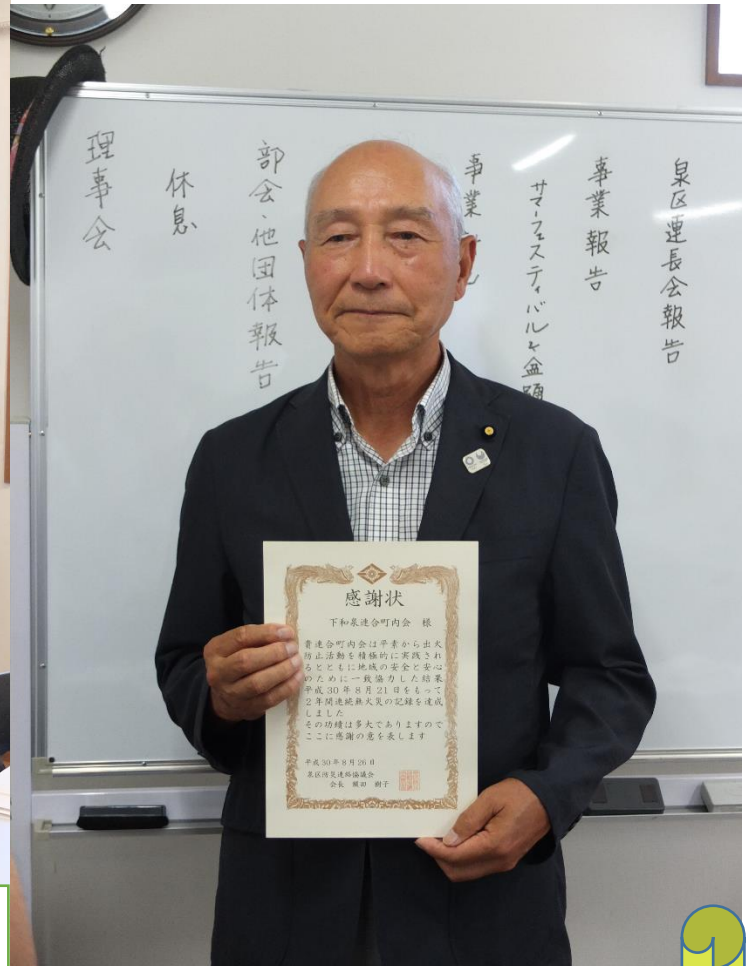 泉区連長会報告
事業報告
サマーフェスティバルと盆踊
事業
部会、他団体報告
休息
理事会
感謝状
下和泉連合町内会 様
貴連合町内会は平素から出火
防止活動を積極的に実践され
るとともに地域の安全と安心
のために一致協力した結果
平成30年8月21日をもって
2年間連続無火災の記録を達成
しました
その功績は多大でありますので
ここに感謝の意を表します
平成30年8月26日
泉区防災連絡協議会
会長 樹子